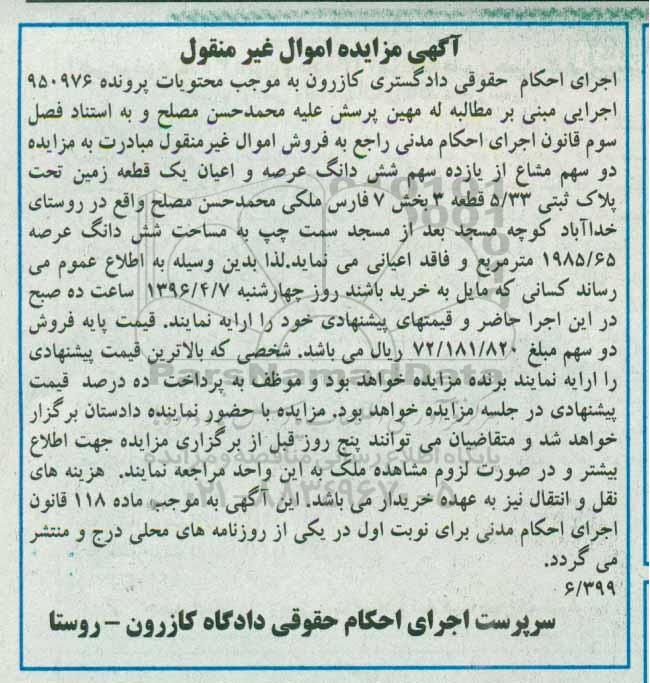 آگهی مزایده اموال غیر منقول
اجرای احکام حقوقی دادگستری کازرون به موجب محتویات پرونده ۹۵۰۹۷۶
اجرایی مبنی بر مطالبه له مهین پرسش علیه محمدحسن مصلح و به استناد فصل
سوم قانون اجرای احکام مدنی راجع به فروش اموال غیرمنقول مبادرت به مزایده
دو سهم مشاع از یازده سهم شش دانگ عرصه و اعیان یک قطعه زمین تحت
پلاک ثبتی ۵/۳۳ قطعه ۳ بخش ۷ فارس ملکی محمدحسن مصلح واقع در روستای
خداآباد کوچه مسجد بعد از مسجد سمت چپ به مساحت شش دانگ عرصه
۱۹۸۵/۶۵ مترمربع و فاقد اعیانی می نماید.لذا بدین وسیله به اطلاع عموم می
رساند کسانی که مایل به خرید باشند روز چهارشنبه ۱۳۹۶/۴/۷ ساعت ده صبح
در این اجرا حاضر و قیمتهای پیشنهادی خود را ارایه نمایند. قیمت پایه فروش
دو سهم مبلغ ۷۲/۱۸۱/۸۲۰ ریال می باشد. شخصی که بالاترین قیمت پیشنهادی
را ارایه نمایند برنده مزایده خواهد بود و موظف به پرداخت ده درصد قیمت
پیشنهادی در جلسه مزایده خواهد بود. مزایده با حضور نماینده دادستان برگزار
خواهد شد و متقاضیان می توانند پنج روز قبل از برگزاری مزایده جهت اطلاع
بیشتر و در صورت لزوم مشاهده ملک به این واحد مراجعه نمایند. هزینه های
نقل و انتقال نیز به عهده خریدار می باشد. این آگهی به موجب ماده ۱۱۸ قانون
اجرای احکام مدنی برای نوبت اول در یکی از روزنامه های محلی درج و منتشر
می گردد.
۶/۳۹۹
سرپرست اجرای احکام حقوقی دادگاه کازرون - روستا
ParsNamadData
پایگاه اطلاع رسانی مناقصه و مزایده
۰۲۱-۸۸۳۴۹۶۷۰-۵